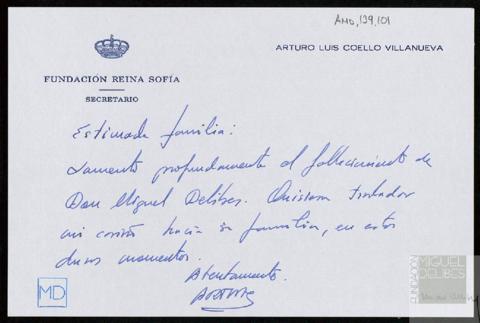 AMD,139,101
ARTURO LUIS COELLO VILLANUEVA
FUNDACIÓN REINA SOFÍA
SECRETARIO
Estimada familia:
Lamento profundamente el fallecimiento de
Don Miguel Delibes. Quisiera trasladar
mi cariño hacia su familia, en estos
duros momentos.
Atentamente.
MD
FUNDACIÓN
MIGUEL
DELIBES